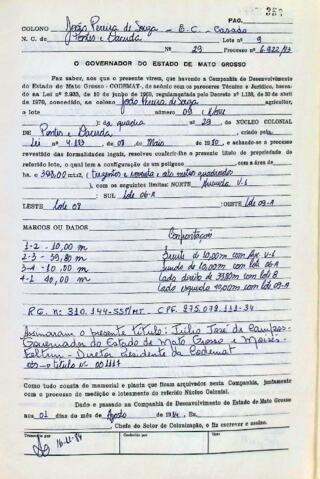 359
PAG.
COLONO João Pereira de Souza - B.C. - Casado
N. C. de Pontes e Lacerda Lote n.º 9
N.º 29 Processo n.º 6.922/83
O GOVERNADOR DO ESTADO DE MATO GROSSO
Faz saber, aos que o presente virem, que havendo a Companhia de Desenvolvimento
do Estado de Mato Grosso - CODEMAT, de acôrdo com os pareceres Técnico e Jurídico, baseando-
sa na Lei n.º de de junho de regulamentada pelo Decreto n.º 1.138, de de abril
de 1970, concedido, ao colono João Pereira de Souza agricultor,
o lote número 09 (Nove
da quadra n.º 29 do NÚCLEO COLONIAL
de Pontes e Lacerda, criado pela
Lei n.º de de Maio de 1980, e achando-se o processo
revestido das formalidades legais, resolveu conferir-lhe o presente título de propriedade
do referido lote, o qual tem a configuração de um polígono com a área de
ha 398,00 mts2, (Trezentos e noventa e oito metros quadrados
), com os seguintes limites: NORTE Avenida V-1
SUL lote 06-A
LESTE lote 08 OESTE lote 09-A
MARCOS OU DADOS Confrontações
1-2 - 10,00 m Frente de 10,00m com Av. V-1
2-3 - 39,80 m Fundo de 10,00m com lote 06-A
3-4 - 10,00 m Lado direito 39,80m com lote 8
4-1 40,00 m Lado esquerdo 40,00m com lote 09-A
R.G. n.º 310.144-SSP/MT. - CPF. 275.078.111-34
Assinaram o presente título: Júlio José de Campos-
Governador do Estado de Mato Grosso e Moisés
Feltrin - Diretor Presidente da Codemat
título nº 001117
Como tudo consta do memorial e planta que ficam arquivados nesta Companhia, juntamente
com o processo de medição e loteamento do referido Núcleo Colonial.
Dado e passado na Companhia de Desenvolvimento do Estado de Mato Grosso
aos 01 dias do mês de Agosto de 1984. Eu,
Chefe do Setor de Colonização, o fiz escrever e assino.
Transcrito por Conferido por Visto
16-11-84